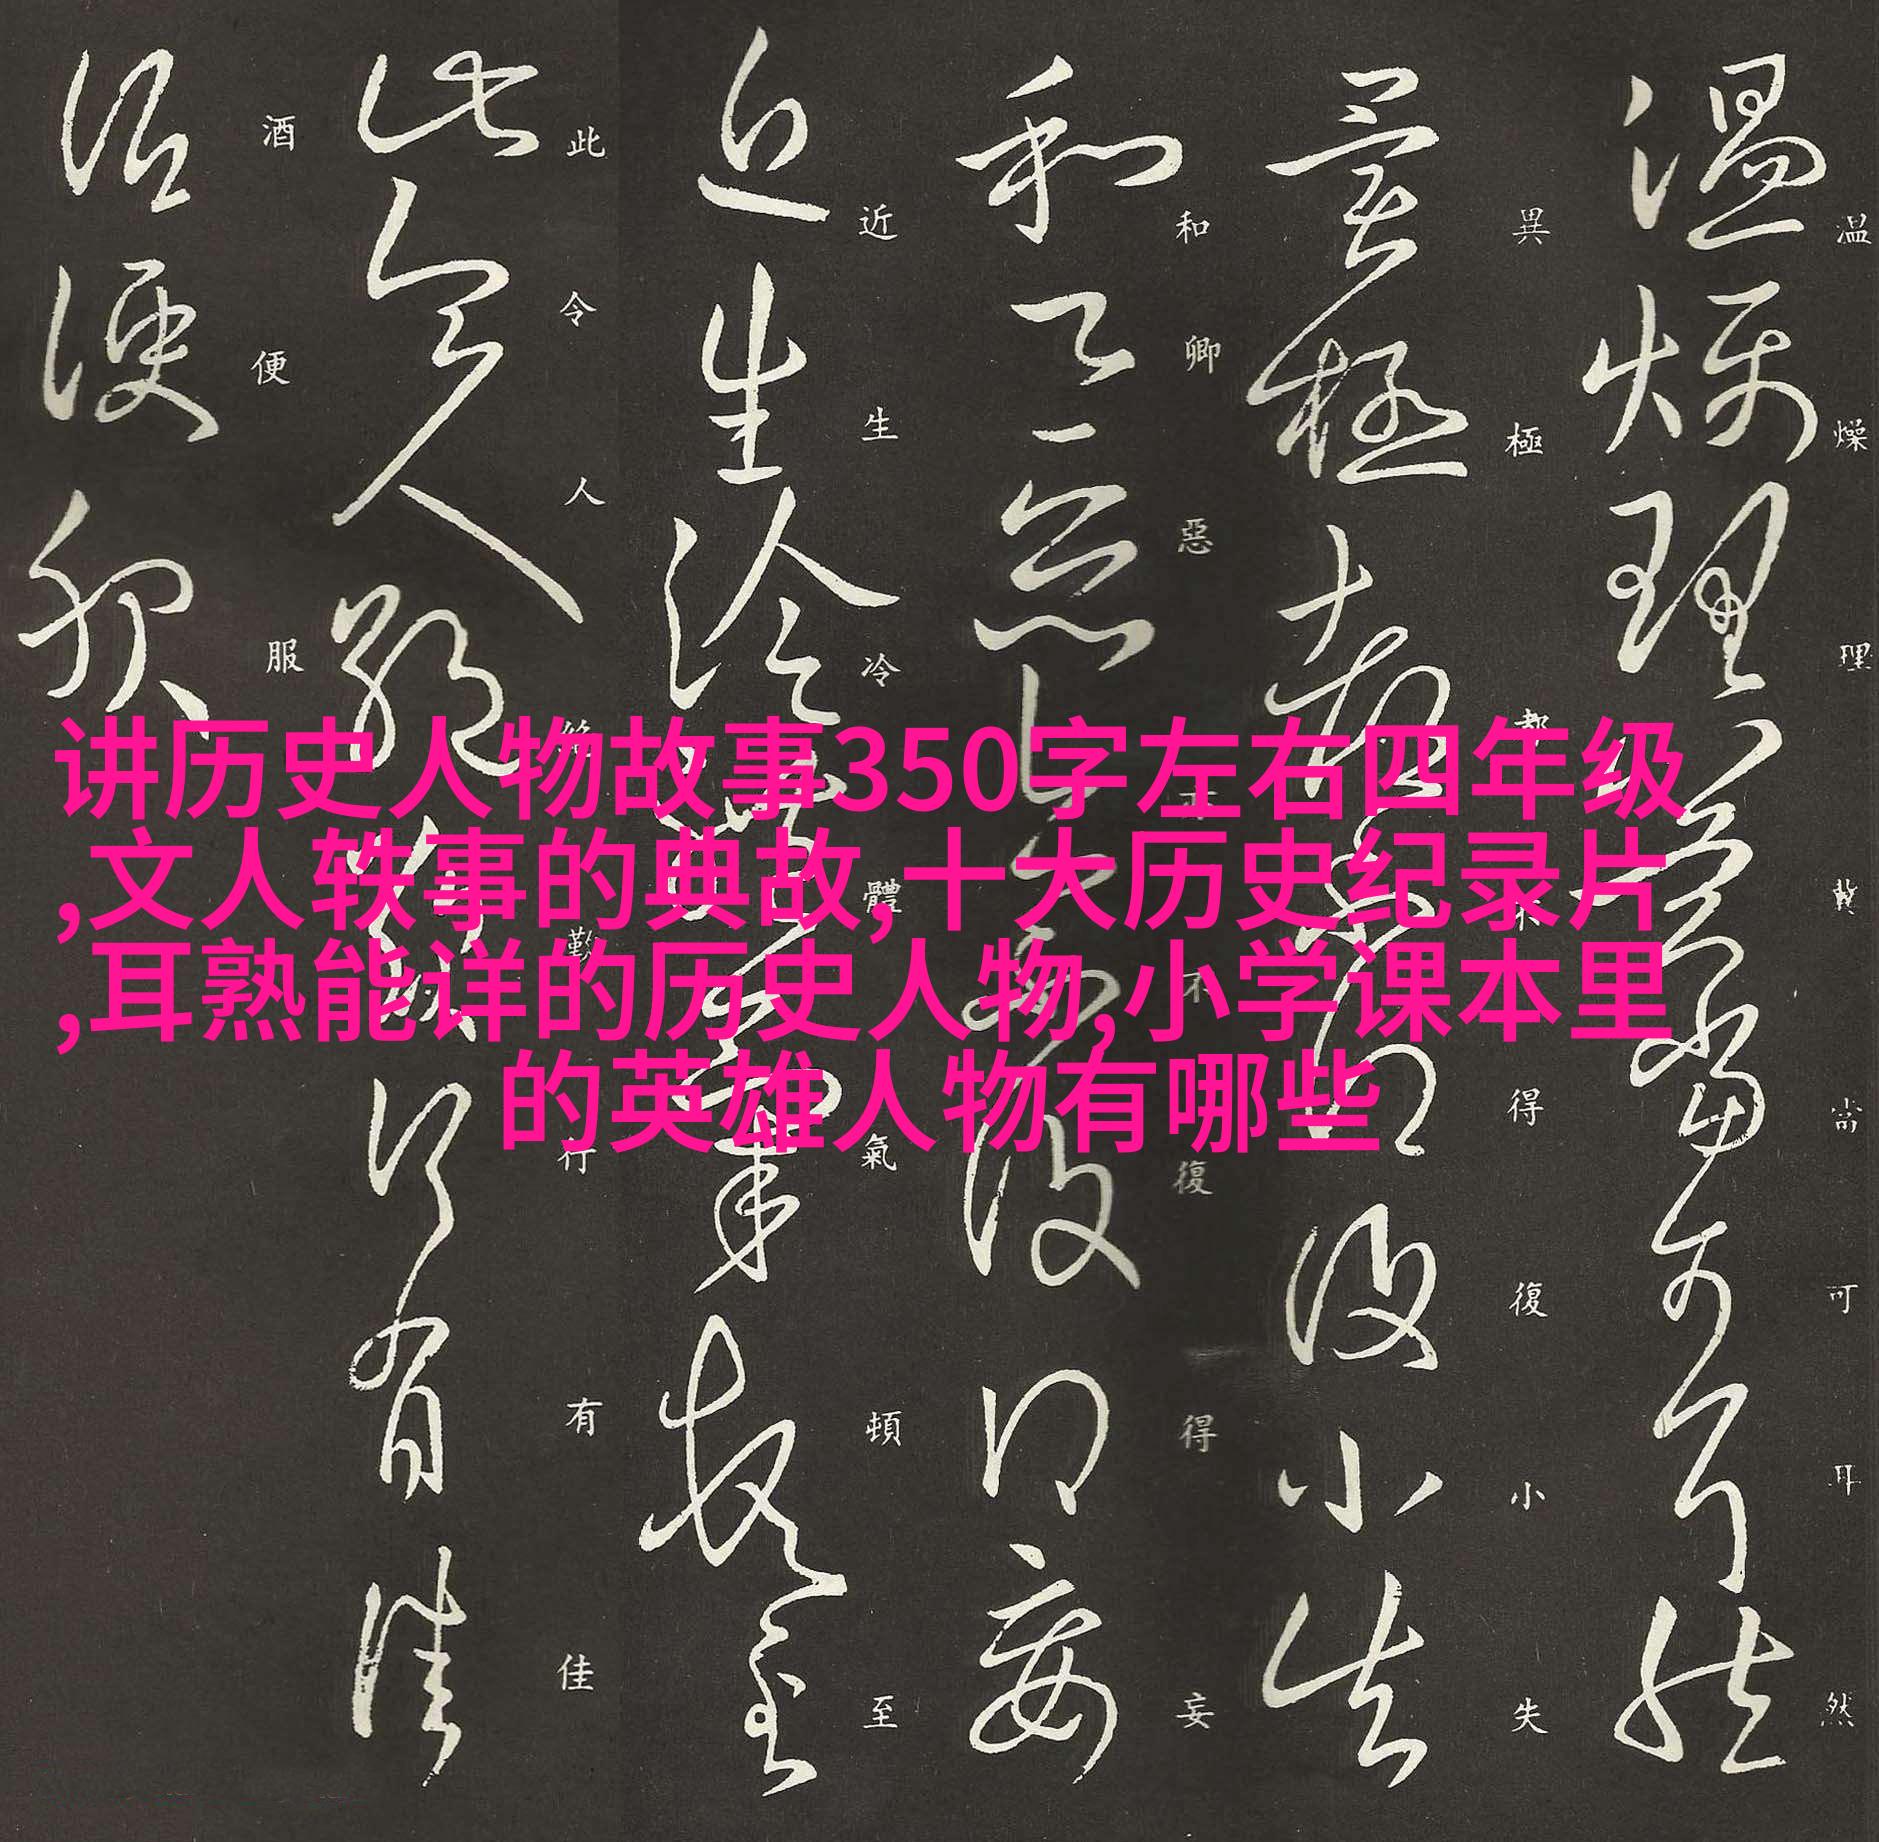 讲历史人物故事350字左右四年级
,文人轶事的典故,十大历史纪录片
,耳熟能详的历史人物,小学课本里
的英雄人物有哪些
温燥理冀當可耳然
異極都不得復小失
和卿惡不復得妄
近生冷體氣頓至
此令人絕勤行有佳
酒便服